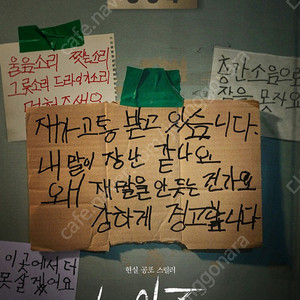 울음소리 짖는소리
그릇소리 드라이기소리
멈춰주세요
층간소음으로
잠을 못자요
제가 고통 받고 있습니다.
내 말이 장난 같나요
왜 제 말을 안듣는 건가요
강하게 경고합니다
이곳에서 더
못살겠어요
현실 공포 스릴러
노이즈